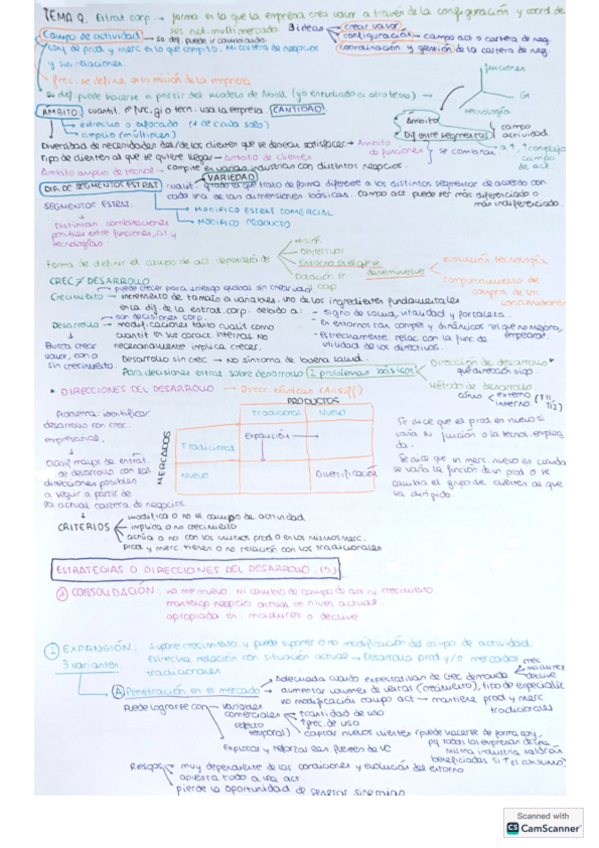 TEMA 9. Estrat. corp → forma en la que la empresa crea valor a través de la configuración y coord de
sus act. multimercado. 3 ideas crear valor
Campo de actividad → su def. puede ir cambiando configuración → campo act o cartera de neg.
conj de prod y merc en los que compito. Mi cartera de negocios coordinación y gestión de la cartera de neg.
y sus relaciones.
prec. se define en la misión de la empresa funciones
su def. puede hacerse a partir del modelo de Abell (ya estudiado en otro tema) → GC
tecnología
ÁMBITO: cuantit. nº func, gc o tecn. usa la empresa. CANTIDAD
estrecho o enfocado (1 de cada solo)
amplio (múltiples)
Ámbito
Dif entre segmentos campo actividad
Diversidad de necesidades de los clientes que se desean satisfacer → Ámbito de funciones
Tipo de clientes al que se quiere llegar → Ámbito de clientes
se combinan
Ámbito amplio de tecnol → compite en varias industrias con distintos negocios.
VARIEDAD
DIF. DE SEGMENTOS ESTRAT. cualit. grado en que trato de forma diferente a los distintos segmentos de acuerdo con
cada una de las dimensiones básicas. Campo act puede ser más diferenciado o
más indiferenciado.
SEGMENTOS ESTRAT. MODIFICO ESTRAT COMERCIAL
MODIFICO PRODUCTO
Distintas combinaciones
posibles entre funciones, GC y
tecnologías
Misión
Forma de definir el campo de act. dependerá de Objetivos
Entorno en el que se desenvuelve
evolución tecnología
comportamiento de
compra de los
consumidores
CREC ≠ DESARROLLO
puede crecer para un riesgo global sin crear valor
Crecimiento → incremento de tamaño en variables. Uno de los ingredientes fundamentales
en la dif. de la estrat. corp. debido a: - signo de salud, vitalidad y fortaleza.
son decisiones corp.
- En entornos tan compet y dinámicos "el que no mejora, empeora".
Desarrollo → modificaciones tanto cualit como
cuantit en sus caract internas. No
necesariamente implica crecer.
- Estrechamente relac con la func de
utilidad de los directivos.
Busca crear
valor, con o
sin crecimiento.
Desarrollo sin crec → No síntoma de buena salud.
Para decisiones estrat sobre desarrollo 2 problemas básicos
Dirección de desarrollo*
qué dirección sigo.
Método de desarrollo.
cómo externo (T11,
interno T12)
* DIRECCIONES DEL DESARROLLO → Direc. básicas (Ansoff)
PRODUCTOS
Tradicional Nuevo
MERCADOS
Tradicional Expansión
Nuevo Diversificación
Problema: identificar
desarrollo con crec.
empresarial.
Clasif mayor de estrat.
de desarrollo con las
direcciones posibles
a seguir a partir de
su actual cartera de negocios
Se dice que el prod es nuevo si
varía su función o la tecnol. emplea
da.
Se dice que un merc. nuevo es cuando
se varía la función de un prod o se
cambia el grupo de clientes al que
va dirigido.
CRITERIOS
modifica o no el campo de actividad
implica o no crecimiento
actúa o no con los mismos prod o en los mismos merc.
prod y merc. tienen o no relación con los tradicionales
ESTRATEGIAS O DIRECCIONES DEL DESARROLLO (5)
① CONSOLIDACIÓN: no me muevo. Ni cambio de campo de act ni crecimiento
mantengo negocio actual en nivel actual
apropiada en: madurez o declive
② EXPANSIÓN: supone crecimiento y puede suponer o no modificación del campo de actividad.
3 variantes. Estrecha relación con situación actual → Desarrolla prod y/o mercados
tradicionales
crec
madurez
declive
Adecuada cuando expectativas de crec. demanda
Ⓐ Penetración en el mercado → aumentar volumen de ventas (crecimiento), tipo de especializ
no modificación campo act → mantiene prod y merc
tradicionales
Puede lograrse con variables
comerciales
(efecto
temporal)
↑ cantidad de uso
↑ frec. de uso
captar nuevos clientes (puede hacerse de forma conj.
pq todas las empresas de una
misma industria saldrán
beneficiadas si ↑ el consumo)
Explotar y reforzar sus fuentes de VC
Riesgos muy dependiente de las condiciones y evolución del entorno
apuesta todo a una act.
pierde la oportunidad de generar sinergias
Scanned with
CS CamScanner